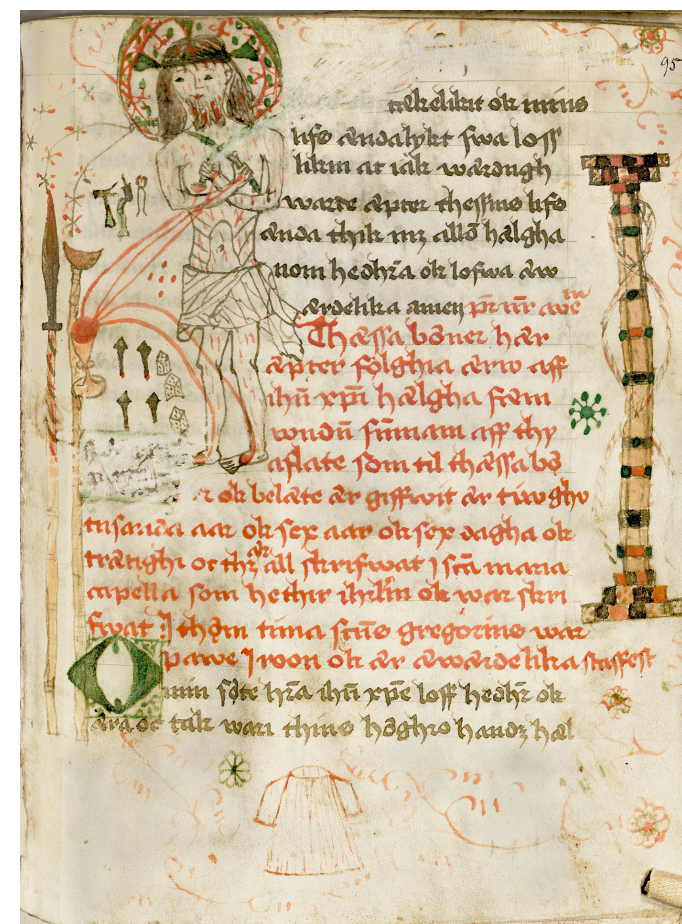 95
nækelikit ok mins
lifs ændalykt swa loff
likin at iak wærdugh
warte æpter thessins lifs
ænda thik mz allō hælgha
nom hedhra ok lofwa æw
ærdelika amen pr nr aue
Thæssa böner hær
æpter fölghia ærw aff
ihū xpi hælgha fæm
wndū
aff thy
aflate som til thæssa bö
r ok belæte ær giffwit ær tiwghv
tusanda aar ok sex aar ok sex dagha ok
trætighi oc thz ær all skrifwat j scā maria
capella som hethir ihrlm ok war skri
fwat j thöm tima scūs gregorius war
pawe j rom ok ær æwærdelika staffest
O min söte hra ihū xpe loff hedhr ok
æra oc tak wari thins höghro handz hæl